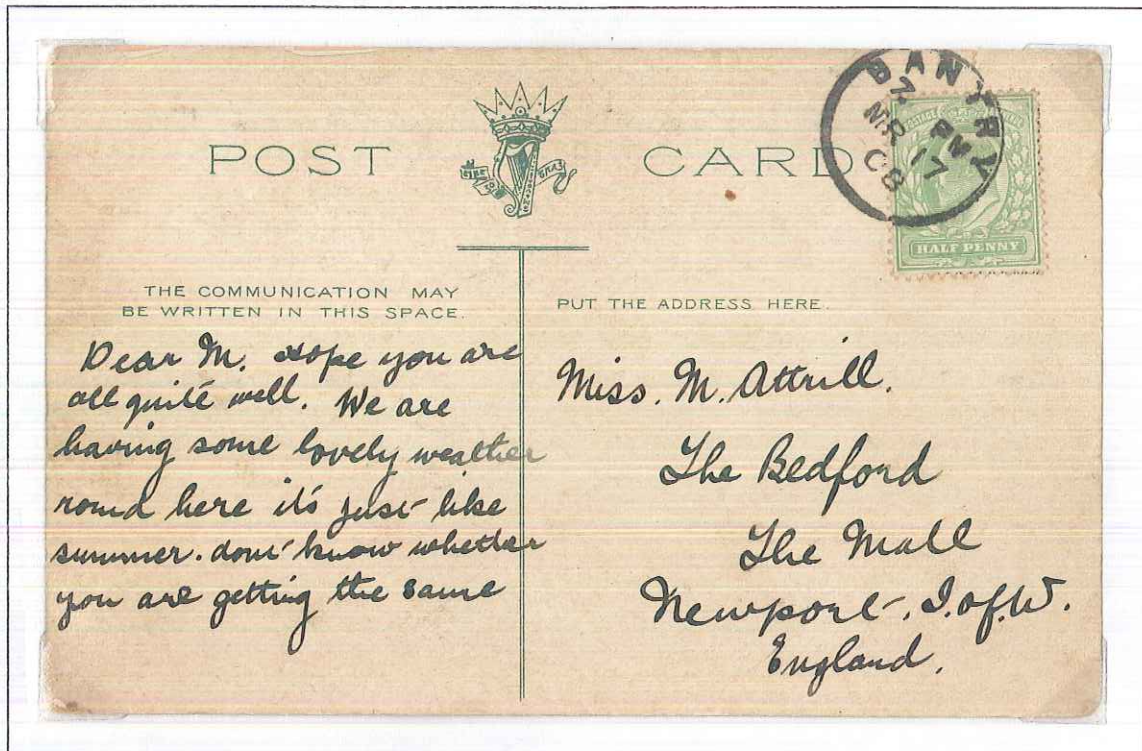 POST CARD
BANTRY
7 PM
MR 17
08
HALF PENNY
THE COMMUNICATION MAY
BE WRITTEN IN THIS SPACE.
PUT THE ADDRESS HERE.
Dear M. Hope you are
all quite well. We are
having some lovely weather
round here it's just like
summer. don't know whether
you are getting the same
Miss. M. Attrill.
The Bedford
The Mall
Newport, I. of W.
England.